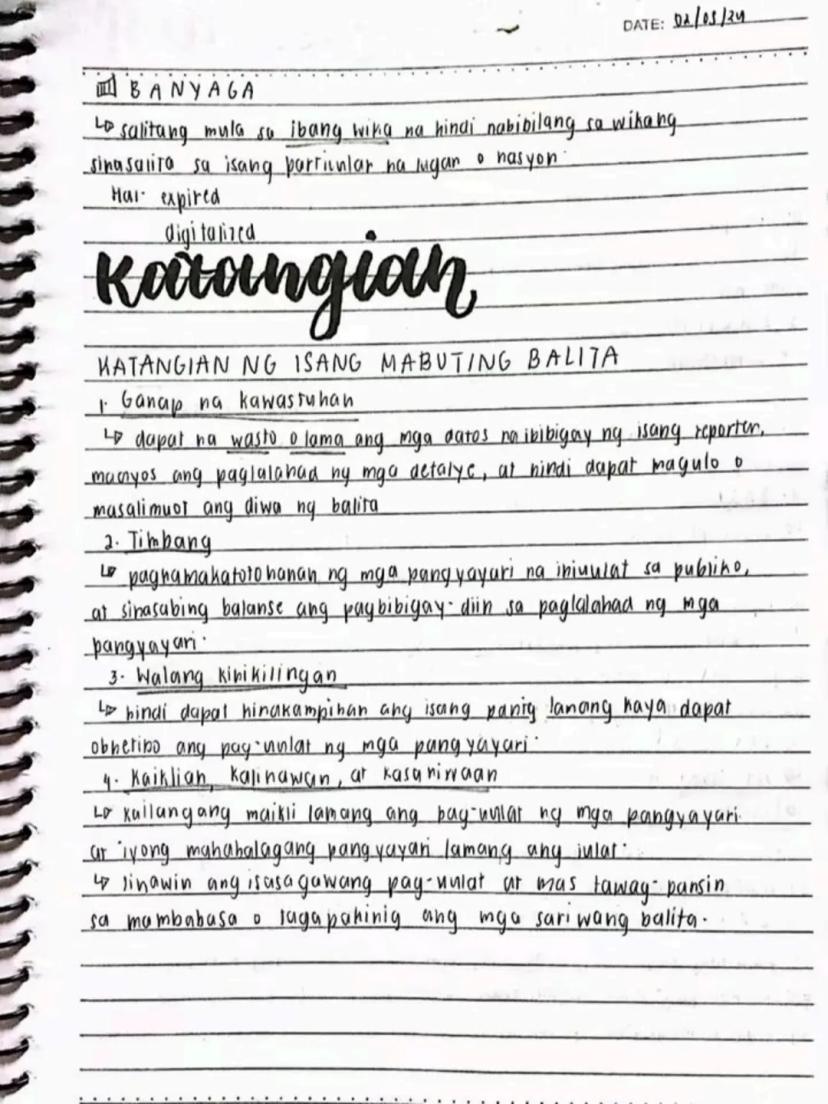 DATE: 02/05/24
BANYAGA
↳ salitang mula sa ibang wika na hindi nabibilang sa wikang
sinasalita sa isang partikular na lugar o nasyon.
Hal. expired
digitalized
Katangian
KATANGIAN NG ISANG MABUTING BALITA
1. Ganap na kawastuhan
↳ dapat na wasto o tama ang mga datos na ibibigay ng isang reporter,
maayos ang paglalahad ng mga detalye, at hindi dapat magulo o
masalimuot ang diwa ng balita
2. Timbang
↳ pagmamakatotohanan ng mga pangyayari na iniuulat sa publiko,
at sinasabing balanse ang pagbibigay-diin sa paglalahad ng mga
pangyayari.
3. Walang kinikilingan
↳ hindi dapat kinakampihan ang isang panig lamang kaya dapat
obhetibo ang pag-uulat ng mga pangyayari.
4. Kaiklian, kalinawan, at kasariwaan
↳ kailangang maikli lamang ang pag-uulat ng mga pangyayari
at iyong mahahalagang pangyayari lamang ang iulat.
↳ linawin ang isasagawang pag-uulat at mas tawag-pansin
sa mambabasa o tagapakinig ang mga sariwang balita.